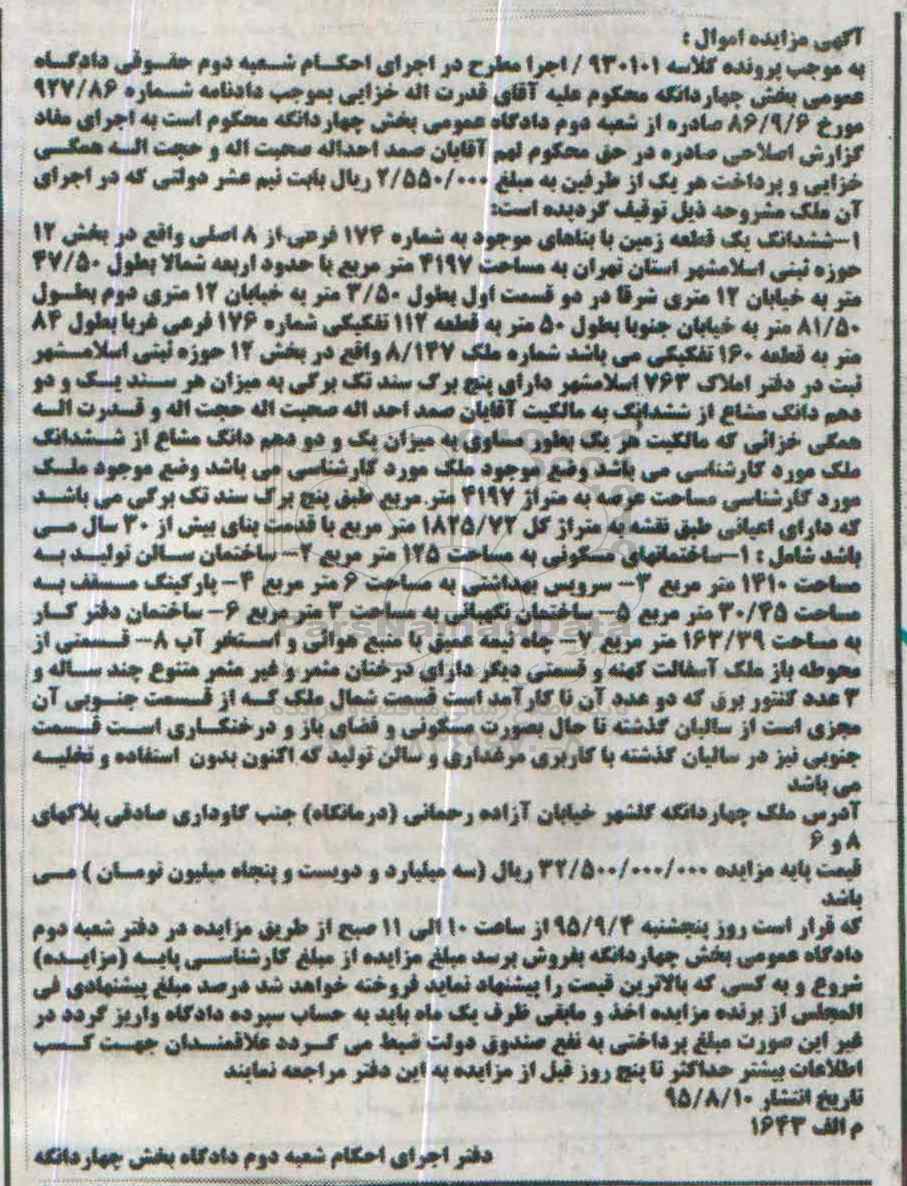 آگهی مزایده اموال :
به موجب پرونده کلاسه ۹۳۰۱۰۱ / اجرا مطرح در اجرای احکام شعبه دوم حقوقی دادگاه
عمومی بخش چهاردانگه محکوم علیه آقای قدرت اله خزایی بموجب دادنامه شماره ۹۲۷/۸۶
مورخ ۸۶/۹/۶ صادره از شعبه دوم دادگاه عمومی بخش چهاردانگه محکوم است به اجرای مفاد
گزارش اصلاحی صادره در حق محکوم لهم آقایان صمد احداله صحبت اله و حجت اله همگی
خزایی و پرداخت هر یک از طرفین به مبلغ ۲/۵۵۰/۰۰۰ ریال بابت نیم عشر دولتی که در اجرای
آن ملک مشروحه ذیل توقیف گردیده است:
۱-ششدانگ یک قطعه زمین با بناهای موجود به شماره ۱۷۴ فرعی از ۸ اصلی واقع در بخش ۱۲
حوزه ثبتی اسلامشهر استان تهران به مساحت ۴۱۹۷ متر مربع با حدود اربعه شمالا بطول ۴۷/۵۰
متر به خیابان ۱۲ متری شرقا در دو قسمت اول بطول ۳/۵۰ متر به خیابان ۱۲ متری دوم بطول
۸۱/۵۰ متر به خیابان جنوبا بطول ۵۰ متر به قطعه ۱۱۲ تفکیکی شماره ۱۷۶ فرعی غربا بطول ۸۴
متر به قطعه ۱۶۰ تفکیکی می باشد شماره ملک ۸/۱۴۷ واقع در بخش ۱۲ حوزه ثبتی اسلامشهر
ثبت در دفتر املاک ۷۶۳ اسلامشهر دارای پنج برگ سند تک برگی به میزان هر سند یک و دو
دهم دانگ مشاع از ششدانگ به مالکیت آقایان صمد احد اله صحبت اله حجت اله و قدرت اله
همگی خزائی که مالکیت هر یک بطور مساوی به میزان یک و دو دهم دانگ مشاع از ششدانگ
ملک مورد کارشناسی می باشد وضع موجود ملک مورد کارشناسی می باشد وضع موجود ملک
مورد کارشناسی مساحت عرصه به متراژ ۴۱۹۷ متر مربع طبق پنج برگ سند تک برگی می باشد
که دارای اعیانی طبق نقشه به متراژ کل ۱۸۲۵/۷۲ متر مربع با قدمت بنای بیش از ۳۰ سال می
باشد شامل : ۱-ساختمانهای مسکونی به مساحت ۱۲۵ متر مربع ۲- ساختمان سالن تولید به
مساحت ۱۴۱۰ متر مربع ۳- سرویس بهداشتی به مساحت ۶ متر مربع ۴- پارکینگ مسقف به
مساحت ۳۰/۴۵ متر مربع ۵- ساختمان نگهبانی به مساحت ۳ متر مربع ۶- ساختمان دفتر کار
به مساحت ۱۶۳/۳۹ متر مربع ۷- چاه نیمه عمیق با منبع هوائی و استخر آب ۸- قسمتی از
محوطه باز ملک آسفالت کهنه و قسمتی دیگر دارای درختان مثمر و غیر مثمر متنوع چند ساله و
۳ عدد کنتور برق که دو عدد آن نا کارآمد است قسمت شمال ملک که از قسمت جنوبی آن
مجزی است از سالیان گذشته تا حال بصورت مسکونی و فضای باز و درختکاری است قسمت
جنوبی نیز در سالیان گذشته با کاربری مرغداری و سالن تولید که اکنون بدون استفاده و تخلیه
می باشد
آدرس ملک چهاردانگه گلشهر خیابان آزاده رحمانی (درمانگاه) جنب گاوداری صادقی پلاکهای
۸ و ۶
قیمت پایه مزایده ۳۲/۵۰۰/۰۰۰/۰۰۰ ریال (سه میلیارد و دویست و پنجاه میلیون تومان ) می
باشد
که قرار است روز پنجشنبه ۹۵/۹/۴ از ساعت ۱۰ الی ۱۱ صبح از طریق مزایده در دفتر شعبه دوم
دادگاه عمومی بخش چهاردانگه بفروش برسد مبلغ مزایده از مبلغ کارشناسی پایه (مزایده)
شروع و به کسی که بالاترین قیمت را پیشنهاد نماید فروخته خواهد شد درصد مبلغ پیشنهادی فی
المجلس از برنده مزایده اخذ و مابقی ظرف یک ماه باید به حساب سپرده دادگاه واریز گردد در
غیر این صورت مبلغ پرداختی به نفع صندوق دولت ضبط می گردد علاقمندان جهت کسب
اطلاعات بیشتر حداکثر تا پنج روز قبل از مزایده به این دفتر مراجعه نمایند
تاریخ انتشار ۹۵/۸/۱۰
م الف ۱۶۴۳
دفتر اجرای احکام شعبه دوم دادگاه بخش چهاردانگه